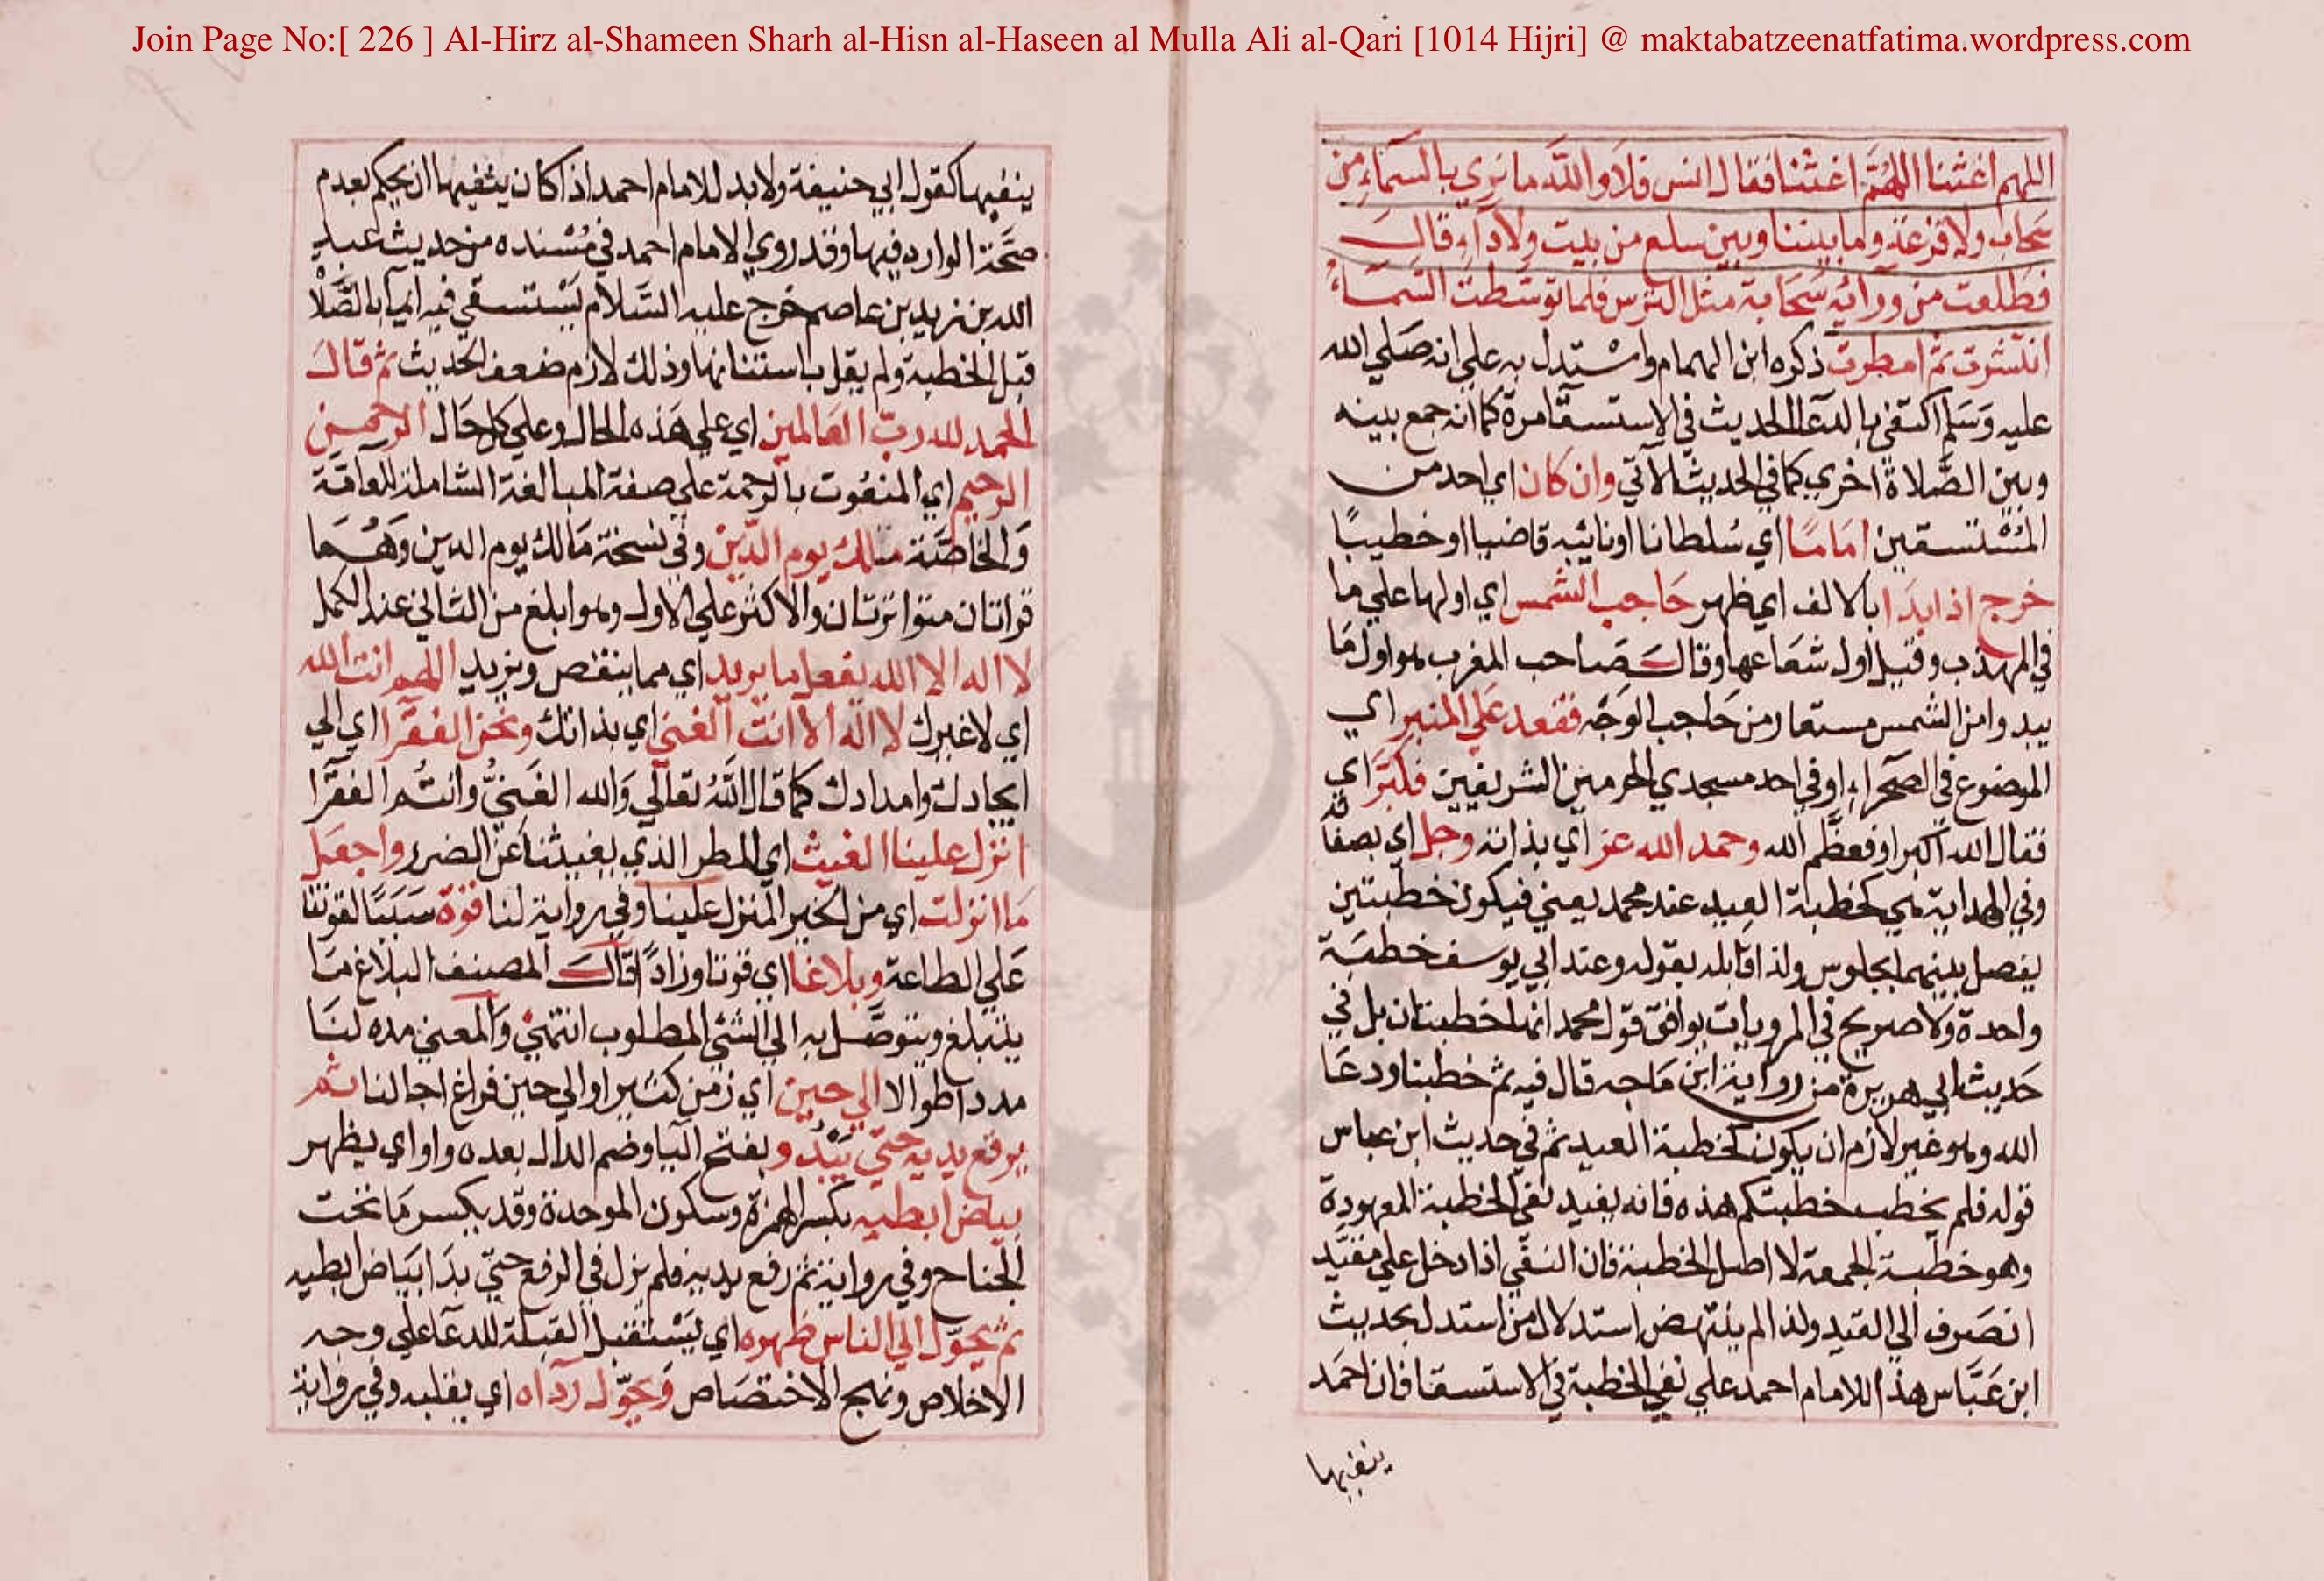 Join Page No:[ 226 ] Al-Hirz al-Shameen Sharh al-Hisn al-Haseen al Mulla Ali al-Qari [1014 Hijri] @ maktabatzeenatfatima.wordpress.com
اللهم اغثنا اللهم اغثنا فقال انس فلا والله ما نري بالسماء من
سحاب ولا قزعة وما بيننا وبين سلع من بيت ولا دار قال
فطلعت من ورائه سحابة مثل الترس فلما توسطت السماء
انتشرت ثم امطرت ذكره ابن الهمام واستدل به علي انه صلي الله
عليه وسلم اكتفي بالدعا الحديث في الاستسقا مرة كما انه جمع بينه
وبين الصلاة اخري كما في الحديث الآتي وان كان اي احد من
المستسقين اماما اي سلطانا او نائبه قاضيا او خطيبا
خرج اذا بدا بالالف اي ظهر حاجب الشمس اي اولها علي ما
في المهذب وقيل اول شعاعها وقال صاحب المغرب هو اول ما
يبدوا من الشمس مستعار من حاجب الوجه فقعد علي المنبر اي
الموضوع في الصحراء او في احد مسجدي الحرمين الشريفين فكبر اي
فقال الله اكبر او فعظم الله وحمد الله عز اي بذاته وجل اي بصفاته
وفي الهداية هي كخطبة العيد عند محمد يعني فيكون خطبتين
يفصل بينهما بجلوس ولذا قابله بقوله وعند ابي يوسف خطبة
واحدة ولا صريح في المرويات يوافق قول محمد انها خطبتان بل في
حديث ابي هريرة من رواية ابن ماجه قال فيه ثم خطبنا ودعا
الله وهو غير لازم ان يكون كخطبة العيد ثم في حديث ابن عباس
قوله فلم يخطب خطبتكم هذه فانه يفيد نفي الخطبة المعهودة
وهو خطبة الجمعة لا اصل الخطبة فان النفي اذا دخل علي مقيد
انصرف الي القيد ولذا لم ينتهض استدلال من استدل بحديث
ابن عباس هذا للامام احمد علي نفي الخطبة في الاستسقا فان احمد
ينفيها
ينفيها كقول ابي حنيفة ولابد للامام احمد اذا كان ينفيها ان يحكم بعدم
صحة الوارد فيها وقد روي الامام احمد في مسنده من حديث عبد
الله بن زيد بن عاصم خرج عليه السلام يستسقي فبدأ بالصلاة
قبل الخطبة ولم يقل باستنانها وذلك لازم ضعف الحديث ثم قال
الحمد لله رب العالمين اي علي هذه الحال وعلي كل حال الرحمن
الرحيم اي المنعوت بالرحمة علي صفة المبالغة الشاملة للعامة
والخاصة ملك يوم الدين وفي نسخة مالك يوم الدين وهما
قراتان متواترتان والاكثر علي الاول وهو ابلغ من الثاني عند الكمل
لا اله الا الله يفعل ما يريد اي مما ينقص ويزيد اللهم انت الله
اي لا غيرك لا اله الا انت الغني اي بذاتك ونحن الفقرا اي الي
ايجادك وامدادك كما قال الله تعالي والله الغني وانتم الفقرا
انزل علينا الغيث اي المطر الذي يغيثنا عن الضرر واجعل
ما انزلت اي من الخير المنزل علينا وفي رواية لنا قوة سببا لقوتنا
علي الطاعة وبلاغا اي قوتا وزادا قال المصنف البلاغ ما
يتبلغ ويتوصل به الي الشئ المطلوب انتهي والمعني مده لنا
مددا طوالا الي حين اي زمن كثير او الي حين فراغ اجالنا ثم
يرفع يديه حتي يبدو بفتح اليا وضم الدال بعده واو اي يظهر
بياض ابطيه بكسر الهمزة وسكون الموحدة وقد يكسر ما تحت
الجناح وفي رواية ثم رفع يديه فلم يزل في الرفع حتي بدا بياض ابطيه
ثم يحول الي الناس ظهره اي يستقبل القبلة للدعا علي وجه
الاخلاص ونهج الاختصاص وحول رداه اي يقلبه وفي رواية